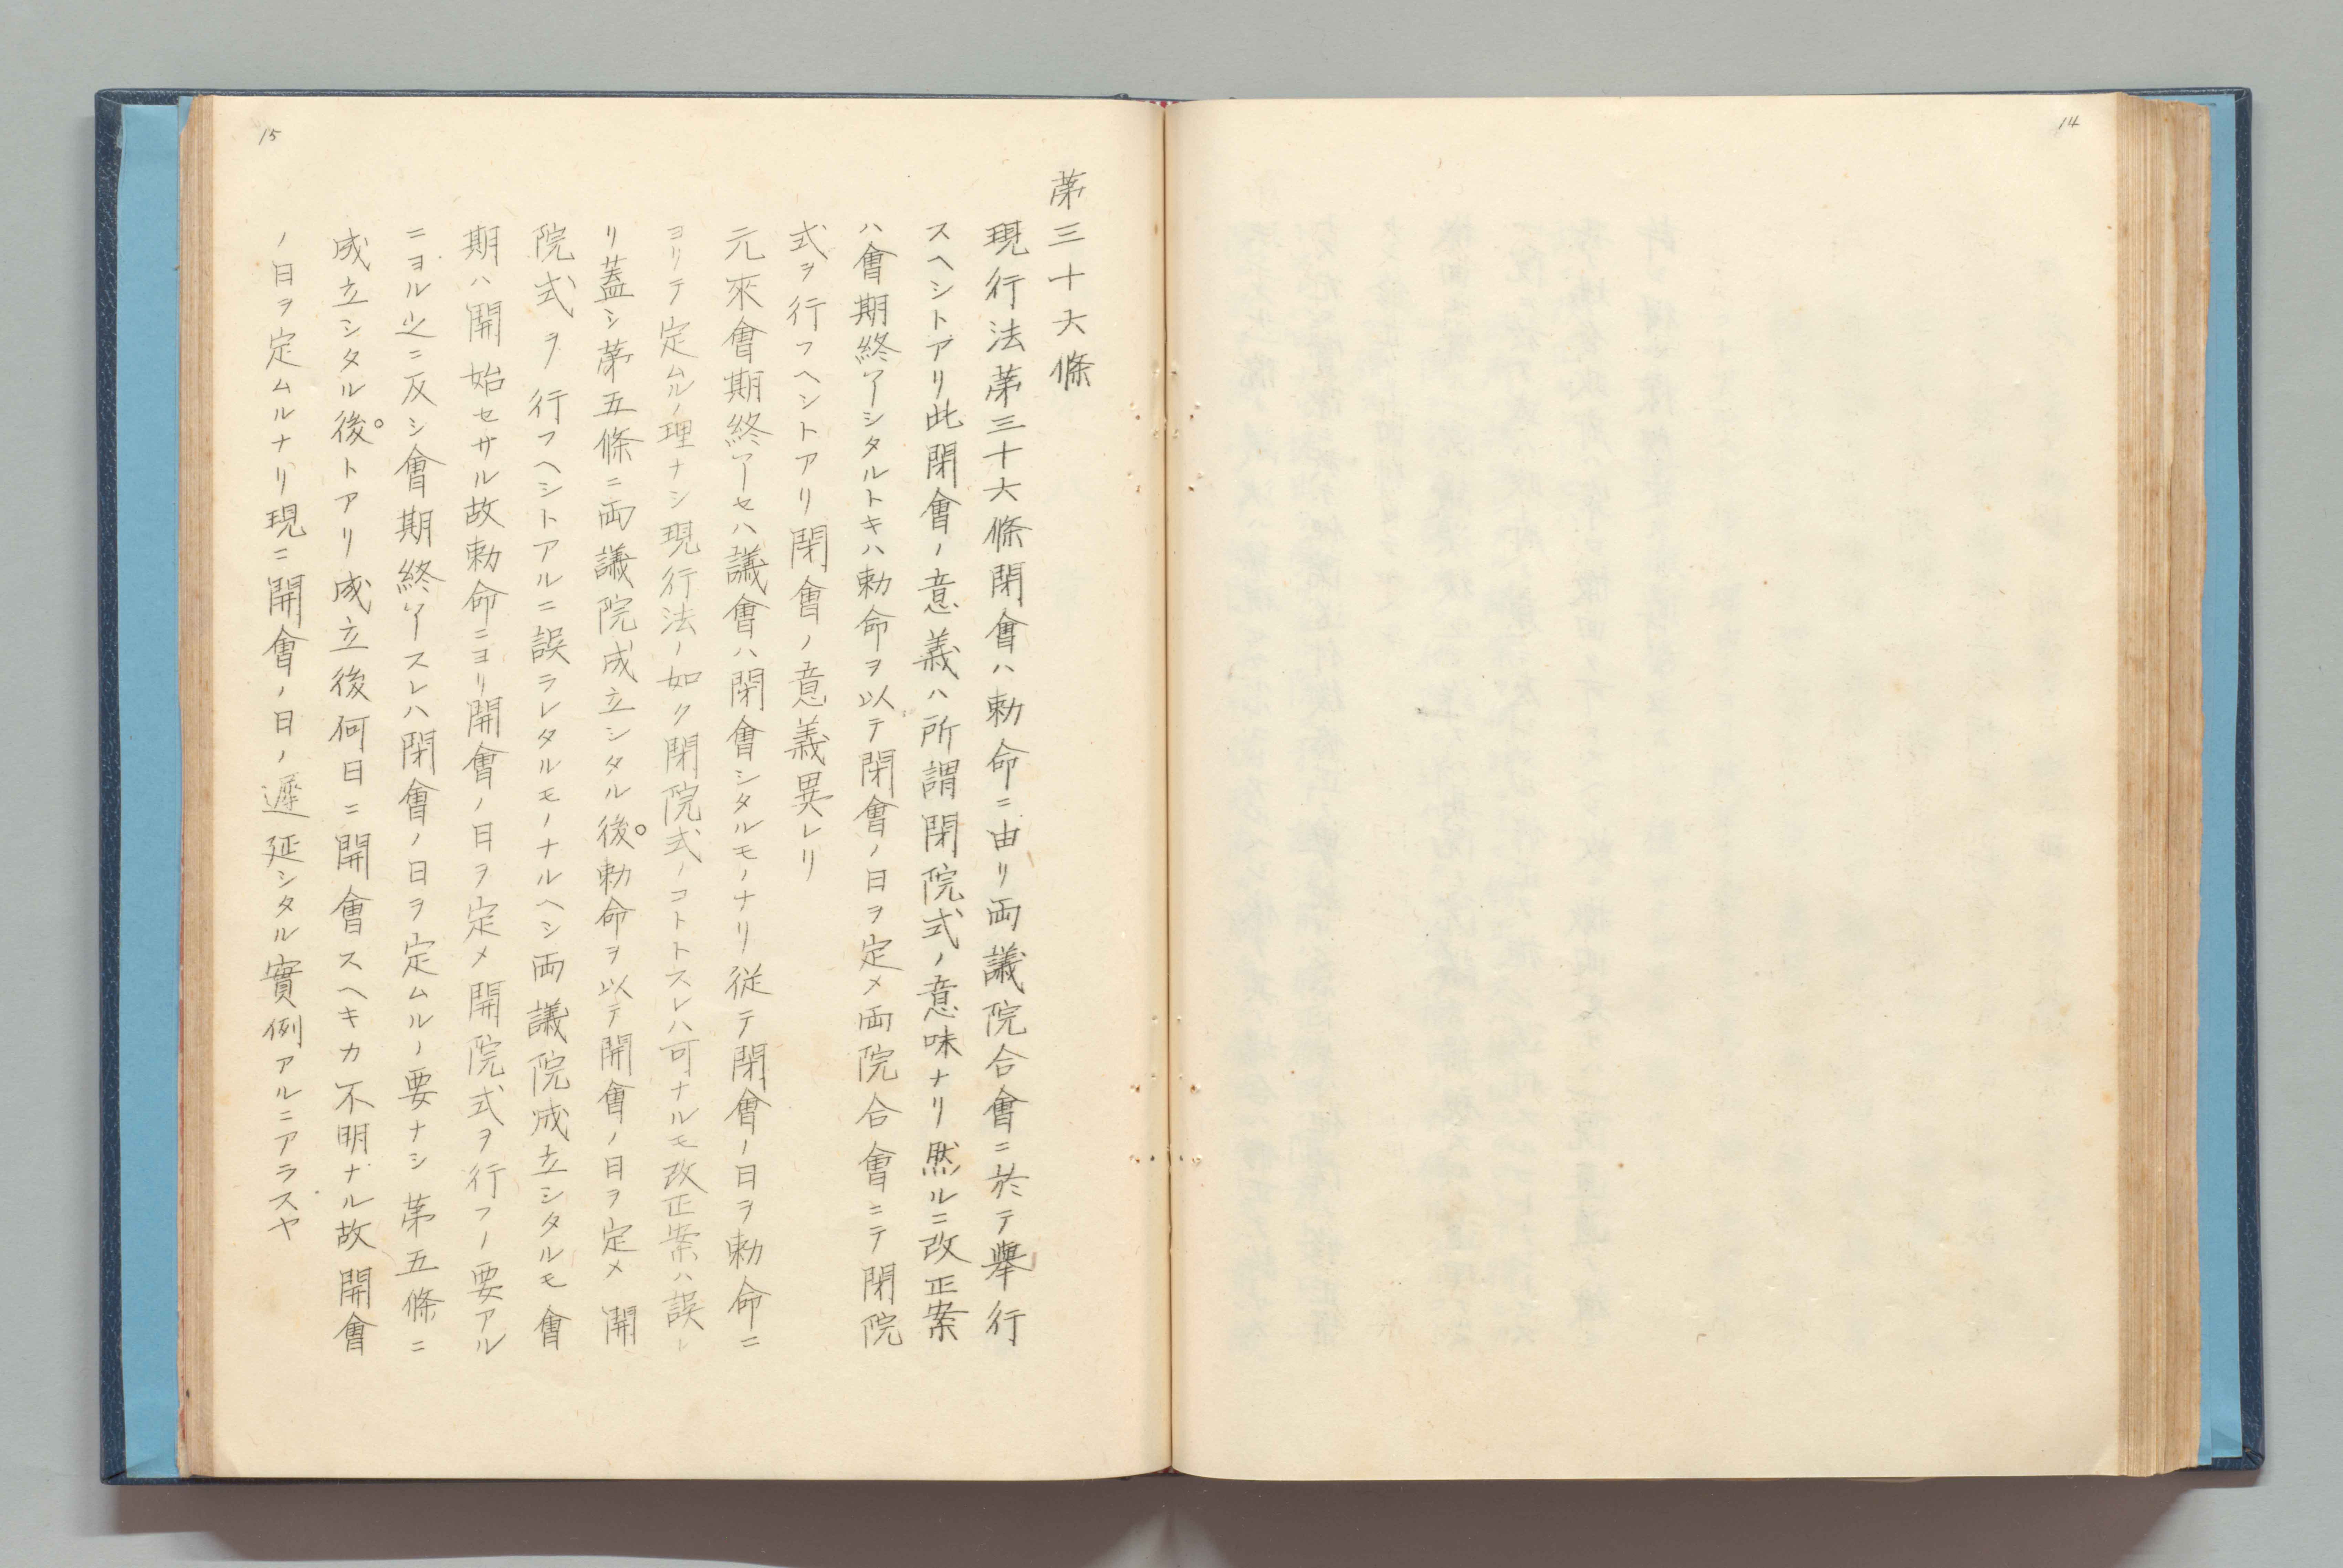 14
15
第三十六條
現行法第三十六條閉會ハ勅命ニ由リ両議院合會ニ於テ擧行
スヘシトアリ此閉會ノ意義ハ所謂閉院式ノ意味ナリ然ルニ改正案
ハ會期終了シタルトキハ勅命ヲ以テ閉會ノ日ヲ定メ両院合會ニテ閉院
式ヲ行フヘシトアリ閉會ノ意義異レリ
元來會期終了セハ議會ハ閉會シタルモノナリ従テ閉會ノ日ヲ勅命ニ
ヨリテ定ムルノ理ナシ現行法ノ如ク閉院式ノコトトスレハ可ナルモ改正案ハ誤レ
リ蓋シ第五條ニ両議院成立シタル後。勅命ヲ以テ開會ノ日ヲ定メ開
院式ヲ行フヘシトアルニ誤ラレタルモノナルヘシ両議院成立シタルモ會
期ハ開始セサル故勅命ニヨリ開會ノ日ヲ定メ開院式ヲ行フノ要アル
ニヨル之ニ反シ會期終了スレハ閉會ノ日ヲ定ムルノ要ナシ第五條ニ
成立シタル後。トアリ成立後何日ニ開會スヘキカ不明ナル故開會
ノ日ヲ定ムルナリ現ニ開會ノ日ノ遲延シタル實例アルニアラスヤ